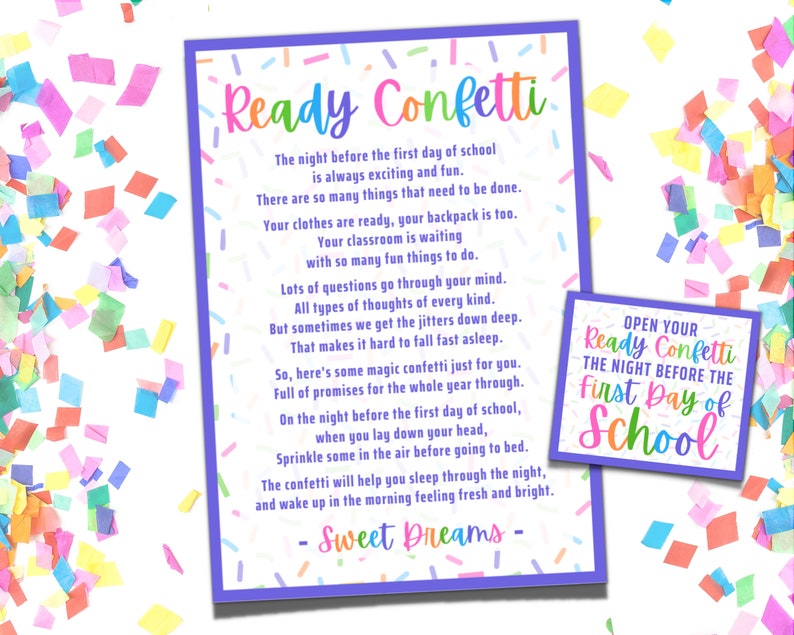 Ready Confetti
The night before the first day of school
is always exciting and fun.
There are so many things that need to be done.
Your clothes are ready, your backpack is too.
Your classroom is waiting
with so many fun things to do.
Lots of questions go through your mind.
All types of thoughts of every kind.
But sometimes we get the jitters down deep.
That makes it hard to fall fast asleep.
So, here's some magic confetti just for you.
Full of promises for the whole year through.
On the night before the first day of school,
when you lay down your head,
Sprinkle some in the air before going to bed.
The confetti will help you sleep through the night,
and wake up in the morning feeling fresh and bright.
- Sweet Dreams -
OPEN YOUR
Ready Confetti
THE NIGHT BEFORE THE
First Day of
School